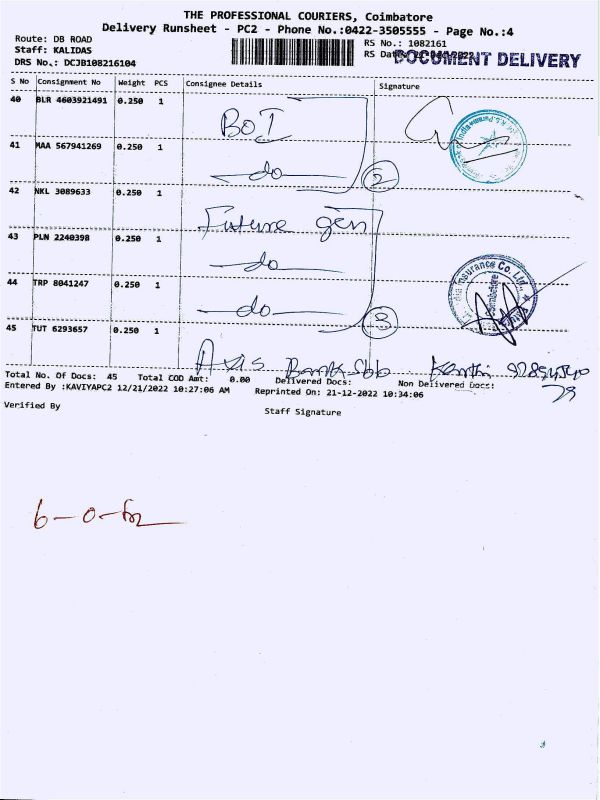 THE PROFESSIONAL COURIERS, Coimbatore
Delivery Runsheet - PC2 - Phone No.:0422-3505555 - Page No.:4
Route: DB ROAD
Staff: KALIDAS
DRS No.: DCJB108216104
RS No.: 1082161
RS Date:
DOCUMENT DELIVERY
S No Consignment No Weight PCS Consignee Details Signature
40 BLR 4603921491 0.250 1 BOI
41 MAA 567941269 0.250 1 do 2
42 NKL 3089633 0.250 1 Future gen
43 PLN 2240398 0.250 1 do
44 TRP 8041247 0.250 1 do 3
Insurance Co. Ltd.
Coimbatore
45 TUT 6293657 0.250 1 Axis Bank
Total No. Of Docs: 45 Total COD Amt: 0.00 Delivered Docs: Non Delivered Docs:
Entered By :KAVIYAPC2 12/21/2022 10:27:06 AM Reprinted On: 21-12-2022 10:34:06
Verified By
Staff Signature